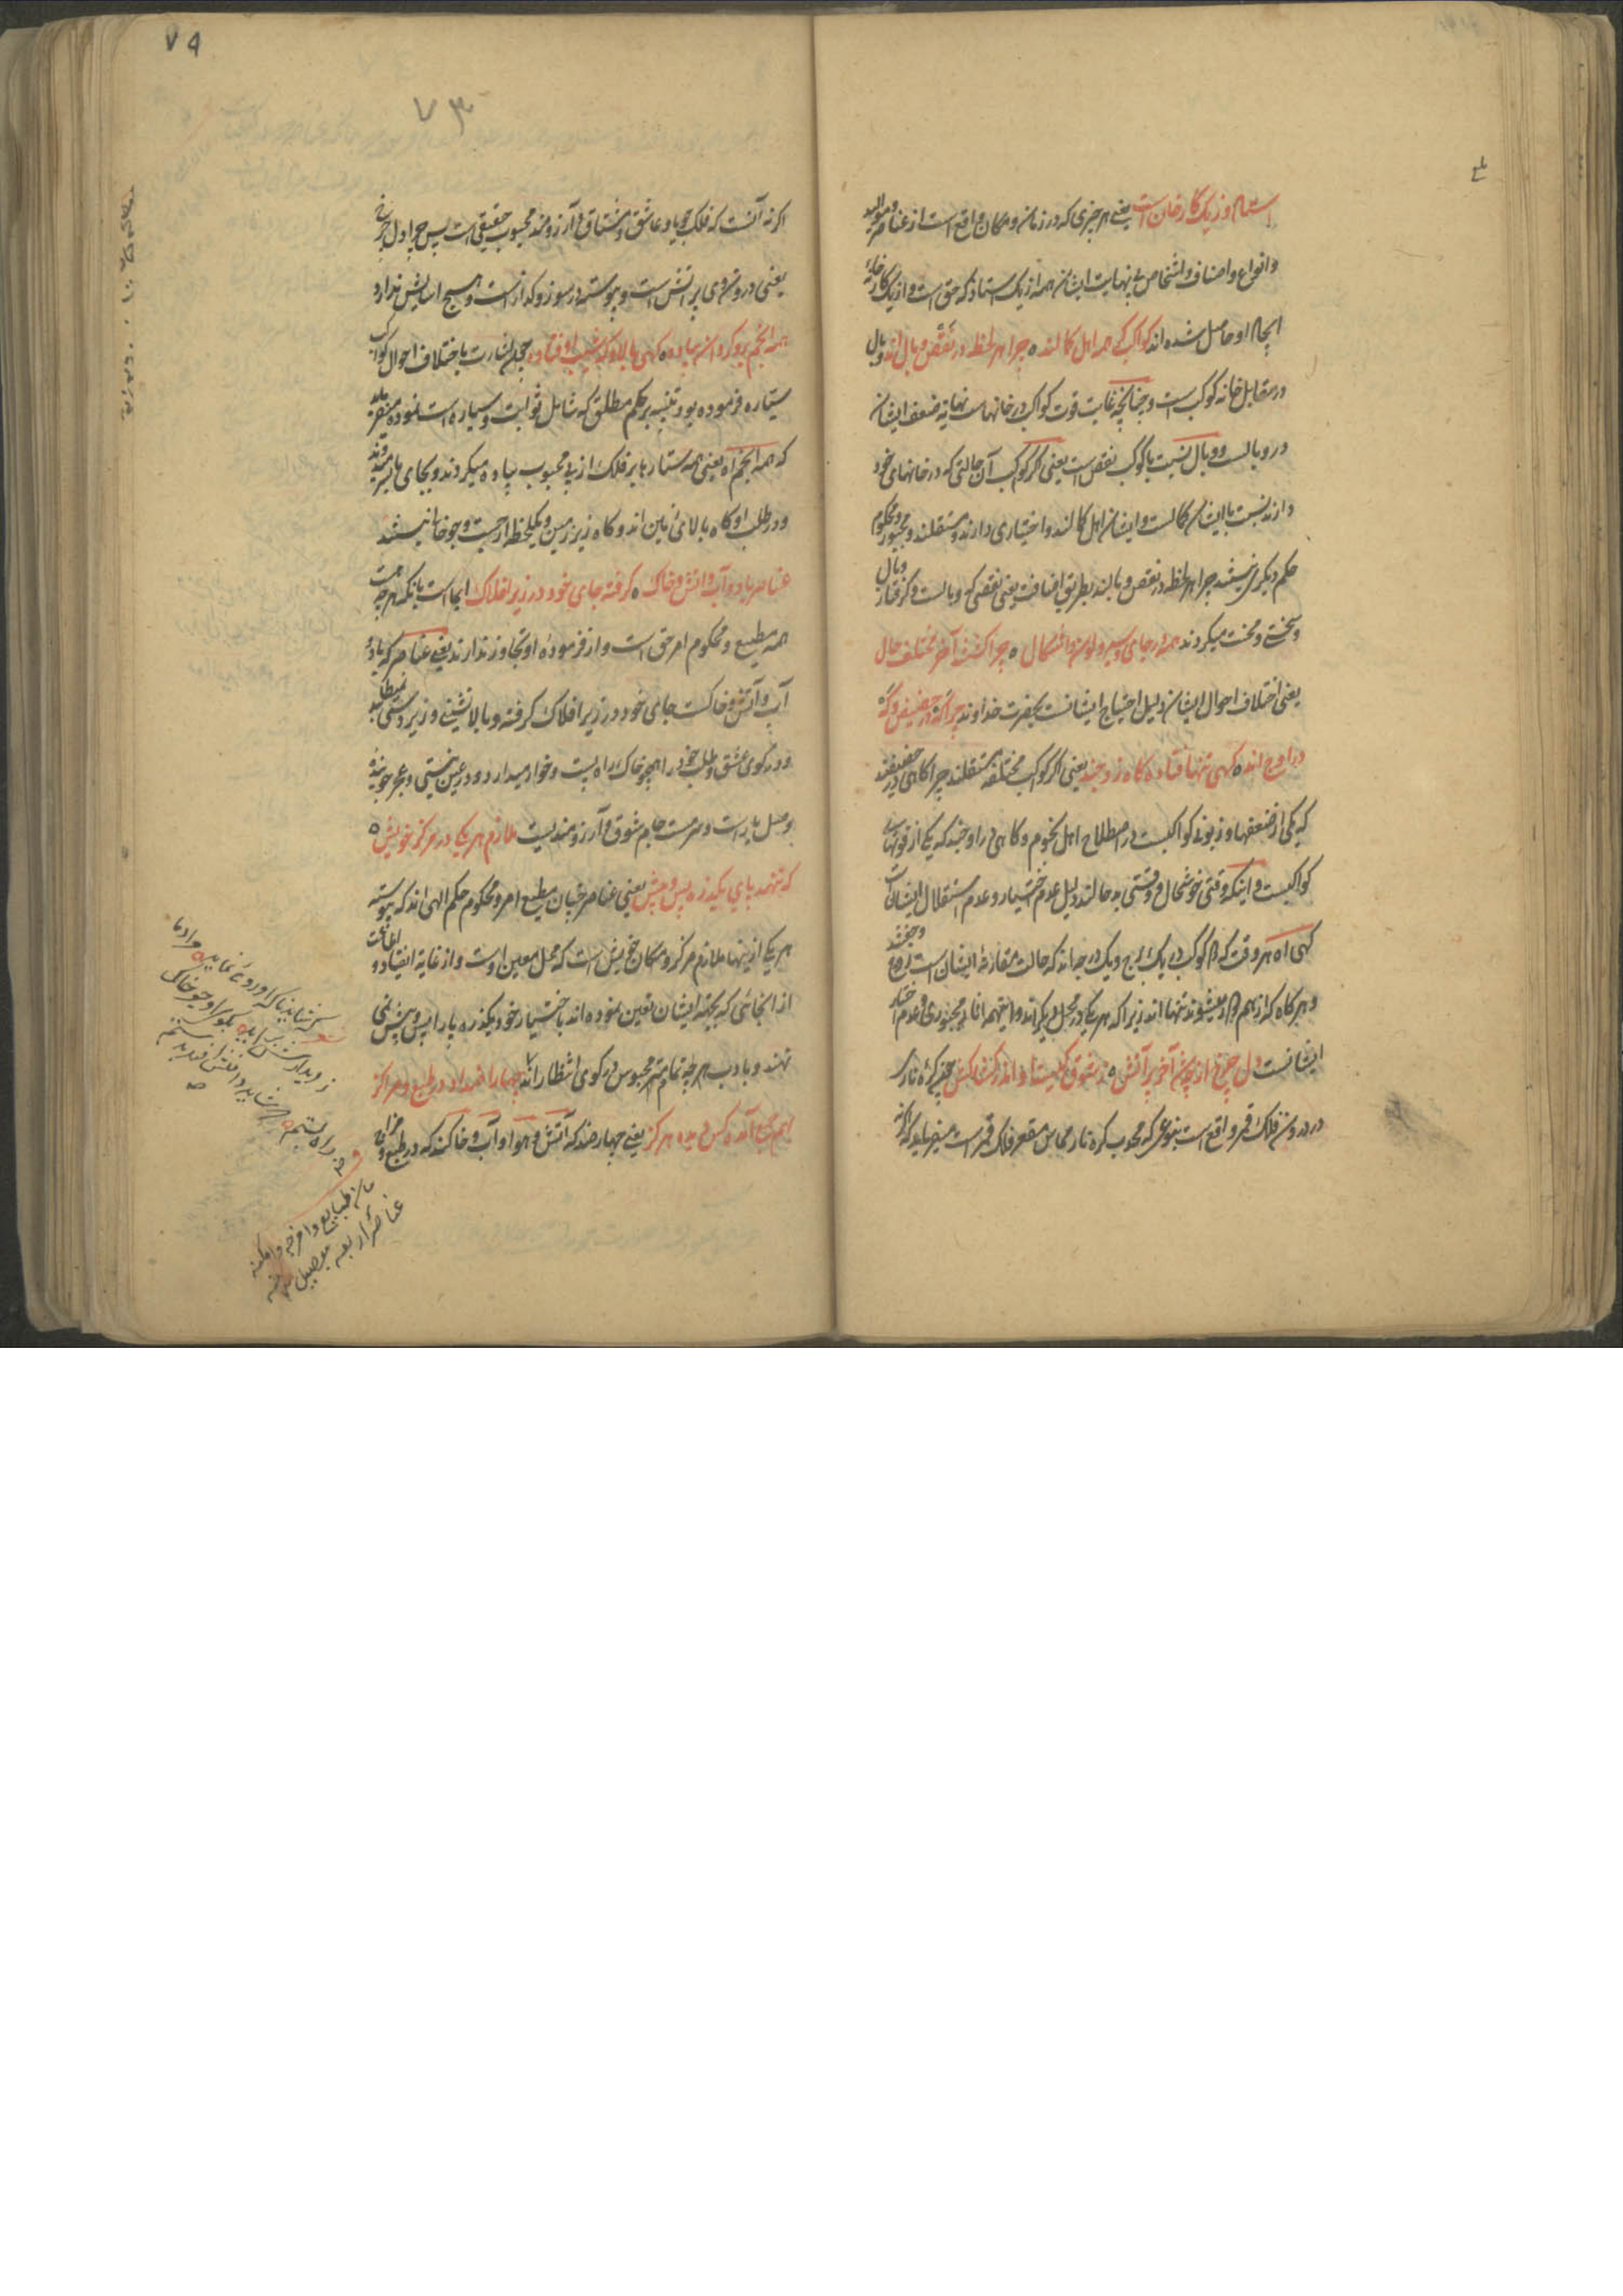 استاد و ز یک کارخان است یعنی هر چیزی که در زمان و مکان واقع است از عناصر و موالید
و انواع و اصناف و اشخاص بی نهایت ایشان همه از یک استاد که حق است و از یک کارخانه
ایجاد او حاصل شده اند کواکب کر همه اهل کمالند چرا هر لحظه در نقص و بال اند و بال
در مقابل خانه کوکب است و چنانچه غایت قوت کواکب در خانهاست نهایة ضعف ایشان
در وبالست و وبال نسبت با کوکب نقص است یعنی اکر کواکب آن حالتی که در خانهای خود
دارند نسبت با ایشان کمالست و ایشان اهل کمالند و اختیاری دارند و مستقلند و مجبور و محکوم
حکم دیکری نیستند چرا هر لحظه در نقص و بالند بطریق اضافت یعنی نقصی که وبالست و کرفتار وبال
و سختی و محنت میکردند همه در جای و سیر و لون و اشکال چرا کشتند آخر مختلف حال
یعنی اختلاف احوال ایشان دلیل احتیاج ایشانست بحضرت خداوند چرا که در حضیض و که
در اوج اند کهی تنها فتاده کاه زوجند یعنی اکر کواکب مختلفه مستقلند چرا کاهی در حضیضند
که یکی از ضعفها و زبونی کواکبست در اصطلاح اهل نجوم و کاهی در اوجند که یکی از قوتهای
کواکبست و اینکه وقتی خوشحال و وقتی بد حالند دلیل عدم اختیار و عدم استقلال ایشانست
کهی اه هر وقت که دو کوکب در یک برج و یک درجه اند که حالت مقارنهٔ ایشان است زوج و جفتند
و هر کاه که از هم دور میشوند تنها اند زیرا که هر یکی در محل دیکر اند و اینهمه اثار مجبوری و عدم اختیار
ایشانست دل چرخ از چه شد آخر پر آتش ز شوق کیست او اندر کشاکش چون کرهٔ نار
در درون فلک قمر واقع است بنوعی که محدب کره نار مماس مقعر فلک قمر است میفرماید که
۷۹
۷۳
اکر نه آنست که فلک جویا و عاشق و مشتاق و آرزومند محبوب حقیقی است پس چرا دل چرخ
یعنی درون وی پر اتش است و پیوسته در سوز و کداز است و هیچ اسایش ندارد
همه انجم برو کردان پیاده کهی بالا و که شیب اوفتاده چون اشارت باختلاف احوال کواکب
سیاره فرموده بود تنبیه بر حکم مطلق که شامل ثوابت و سیاره است نموده میفرماید
که همه انجم اه یعنی همه ستارها بر فلک از پی محبوب پیاده میکردند و بجای پا بسر میروند
و در طلب او کاه بالای زمین اند و کاه زیر زمین و یک لحظه از جست و جو خالی نیستند
عناصر باد و آب و اتش و خاک کرفته جای خود در زیر افلاک ایماست بانکه هر چه هست
همه مطیع و محکوم امر حق است و از فرمودهٔ او تجاوز ندارند یعنی عناصر که باد و
آب و آتش و خاکست جای خود در زیر افلاک کرفته و بالا نشینی و زیر دستی نمیطلبد
و در کوی عشق و طلب خود را همچو خاک راه پست و خوار میدارد و در عین نیستی و عجز جویندهٔ
وصل یار است و سرمست جام شوق و آرزومندیست ملازم هر یکی در مرکز خویش
که ننهد پای یکذره پس و پیش یعنی عناصر چنان مطیع امر و محکوم حکم الهی اند که پیوسته
هر یکی از اینها ملازم مرکز و مکان خویش است که محل معین اوست و از غایة انقیاد و اطاعت
از انجائی که بجهة ایشان تعین نموده اند باختیار خود یکذره پا را پس و پیش نمی
نهند و با ادب هر چه تمامتر محبوس در کوی انتظار اند چهار اضداد در طبع و مراکز
بهم جمع آمده کس دیده هرکز یعنی چهار ضد که آتش و هوا و آب و خاکند که در طبع و مراکز